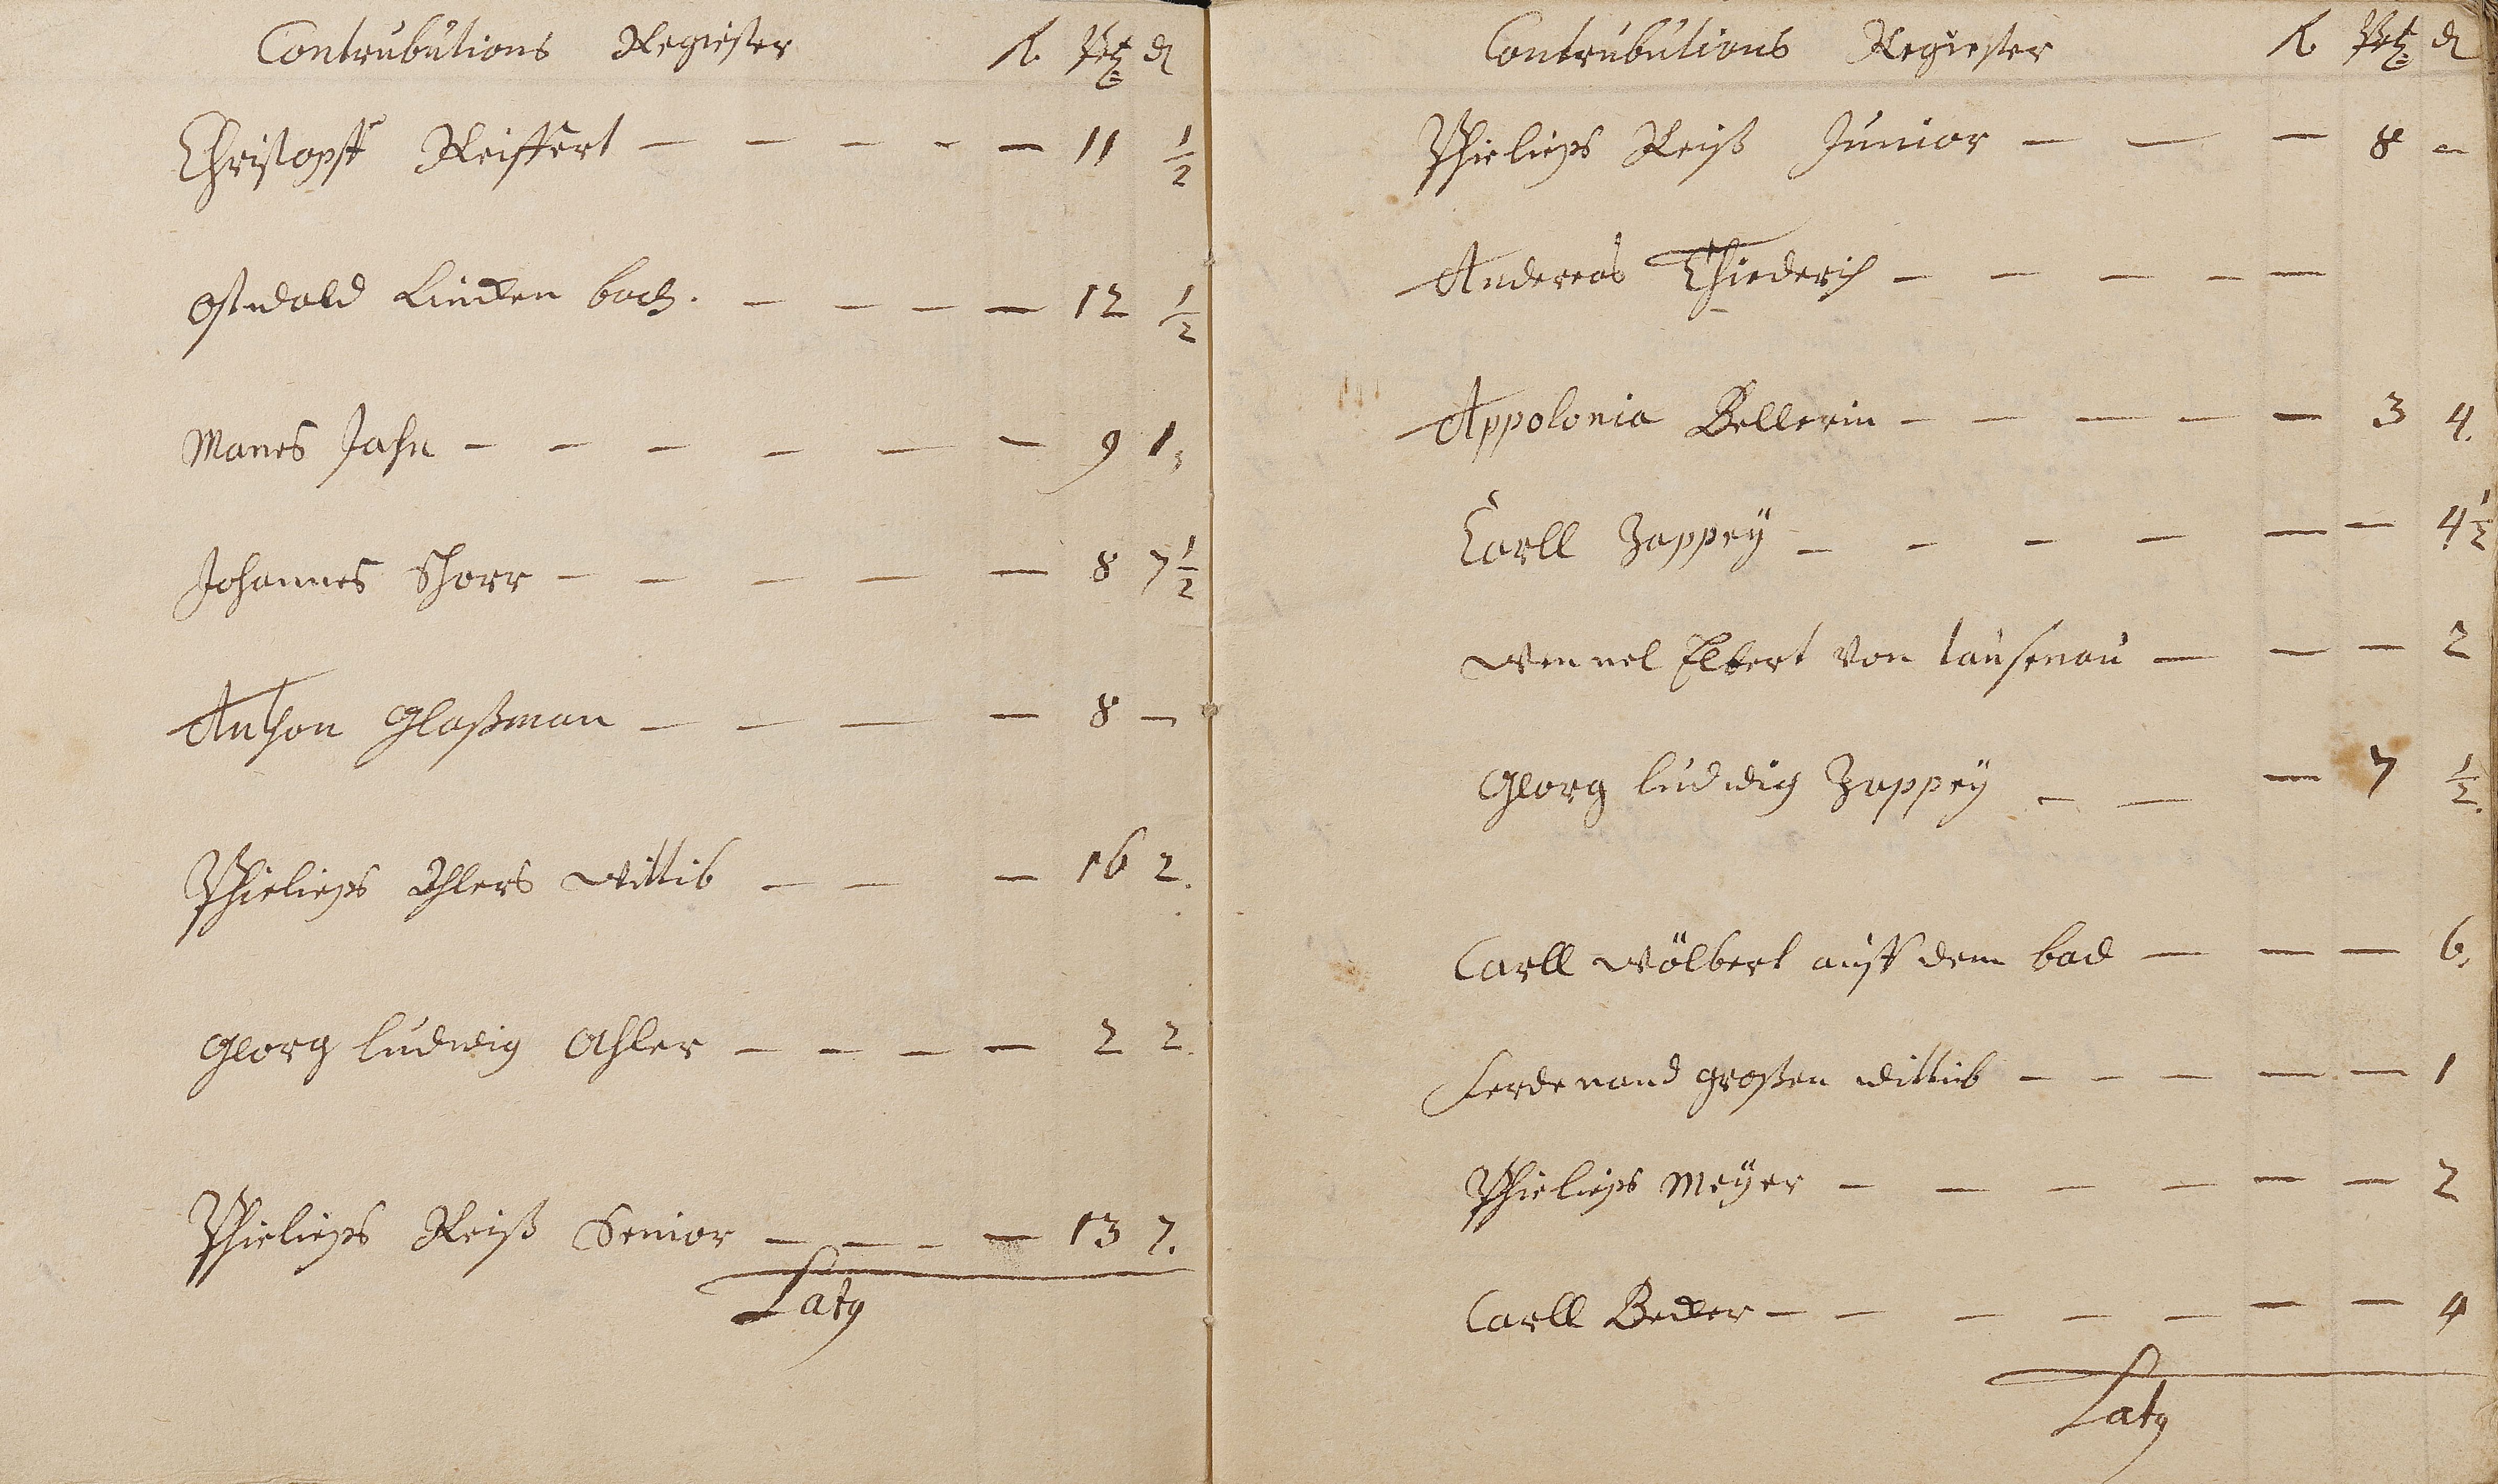 Contrubutions Regiester R. Petz d
Christopff Reiffert — — — — — 11 ½
Ostwald Lincken bach. — — — — 12 ½
Manes Jahn — — — — — — 9 1,
Johannes Schorr — — — — — 8 7½
Anthon Glaßman — — — — 8 —
Phielieps Ohlers wittib — — — 16 2.
Georg Ludwig Ohler — — — — 2 2.
Phielieps Reiß Senior — — — — 13 7.
Latg
Contrubutions Regiester R. Petz d
Phielieps Reiß Junior — — — 8 —
Andereas Thiederich — — — — —
Appolonia Bellerin — — — — — 3 4.
Carll Zappeÿ — — — — — — 4½
Wennel Elbert von tausenau — — — 2
Georg Ludwig Zappeÿ — — — 7 ½.
Carll Wölbert auff dem bad — — — 6,
Ferdenand großen wittib — — — — — 1
Phielieps Meÿer — — — — — — 2
Carll Becker — — — — — — — 4
Latg